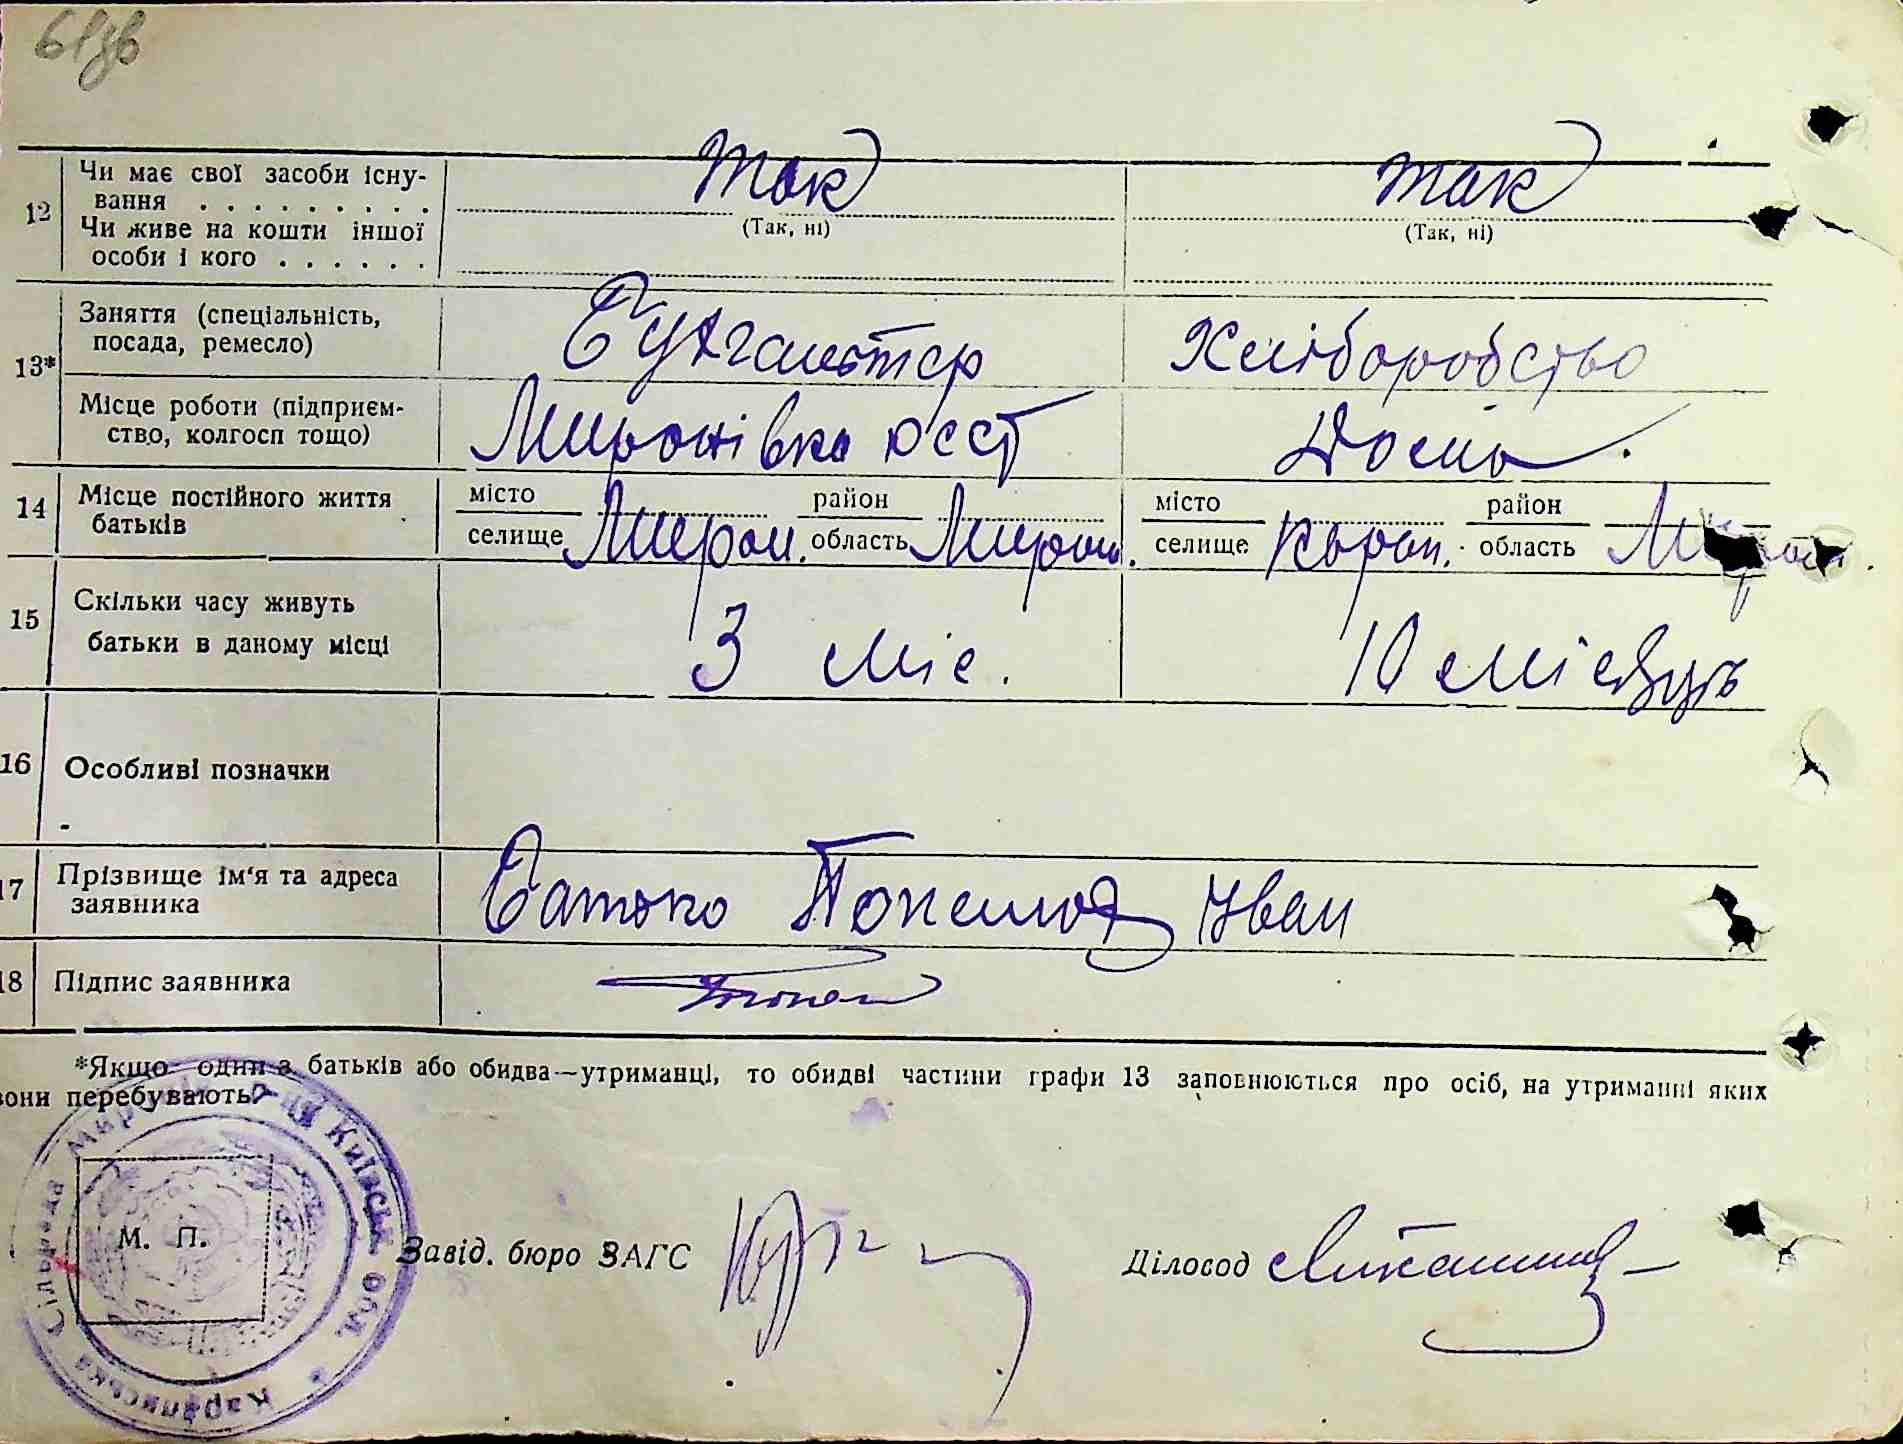 61зв
12 Чи має свої засоби існу-
вання . . . . . . . . . Так Так
(Так, ні) (Так, ні)
Чи живе на кошти іншої
особи і кого . . . . . .
13* Заняття (спеціальність,
посада, ремесло) Бухгальтер Хліборобство
Місце роботи (підприєм-
ство, колгосп тощо) Миронівка
14 Місце постійного життя
батьків
місто район місто район
селище Мирон. область Мирон. селище Карап. область Мирон.
15 Скільки часу живуть
батьки в даному місці 3 міс. 10 місяць
16 Особливі позначки
17 Прізвище ім'я та адреса
заявника Батько Іван
18 Підпис заявника
*Якщо один з батьків або обидва—утриманці, то обидві частини графи 13 заповнюються про осіб, на утриманні яких
вони перебувають.
М. П.
Сільрада Київськ. обл. Караписька
Завід. бюро ЗАГС
Діловод